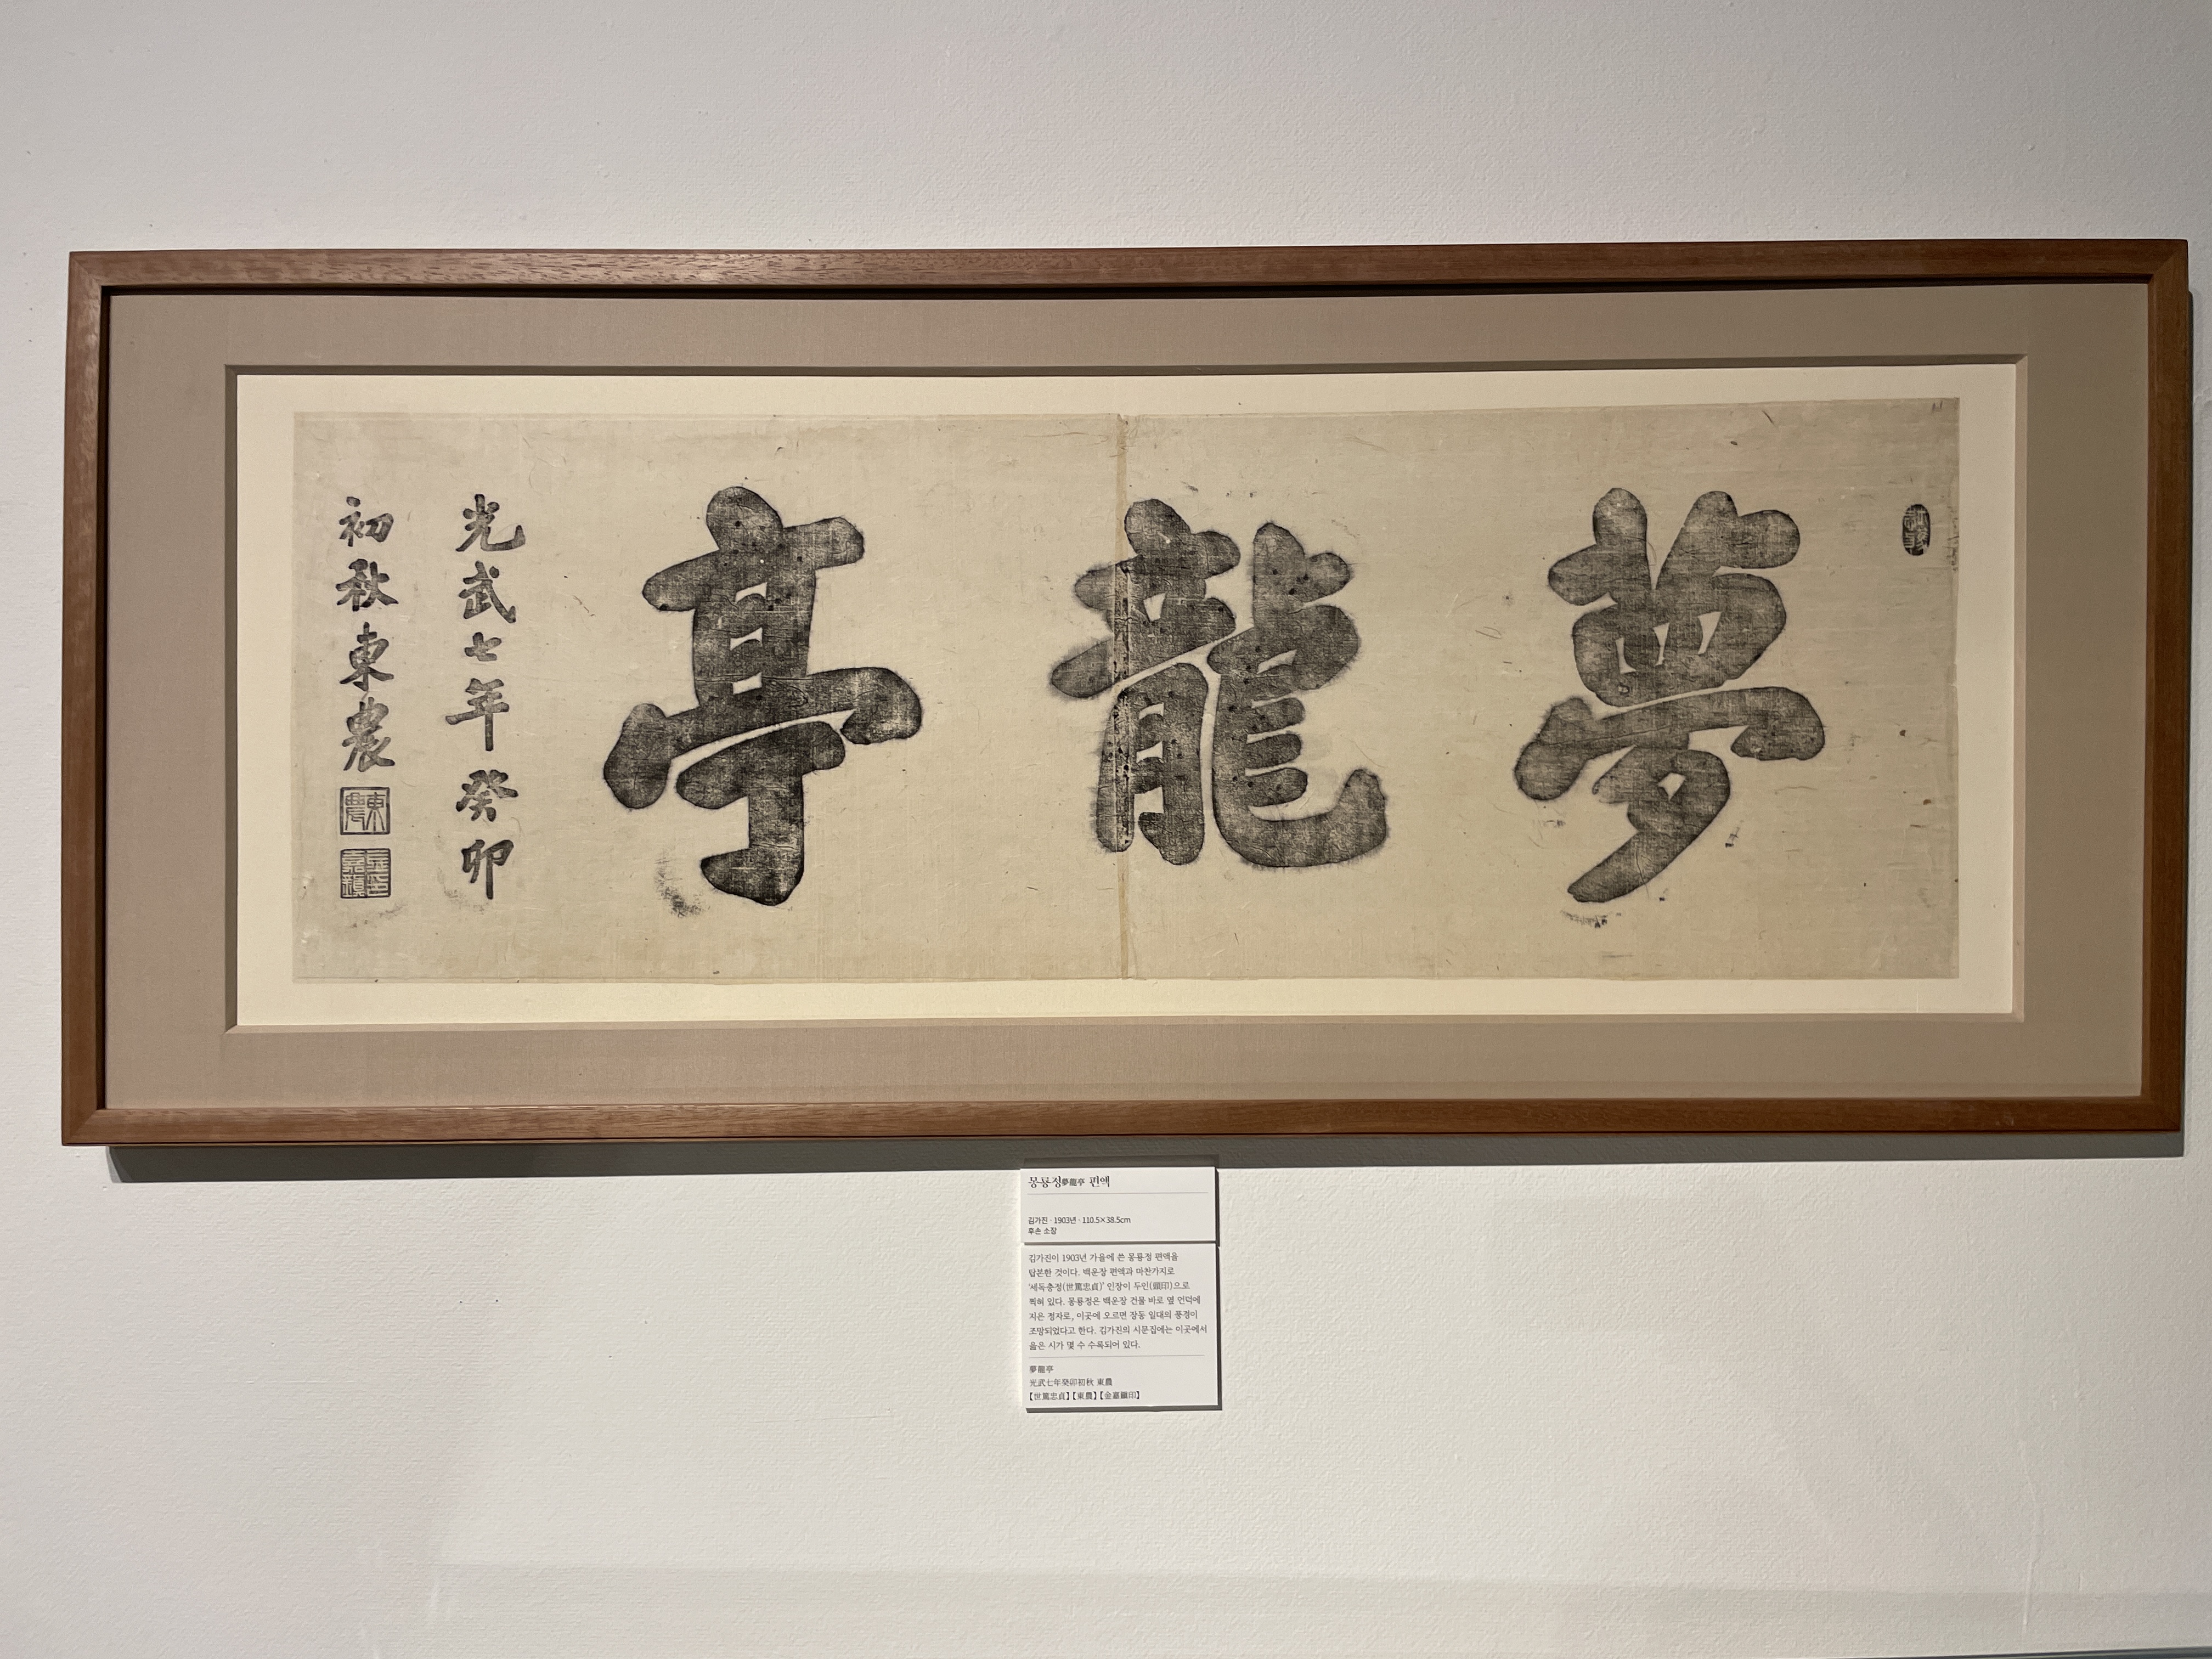 夢龍亭
光武七年癸卯
初秋東農
東農
金嘉鎭印
몽룡정夢龍亭 편액
김가진 · 1903년 · 110.5×38.5cm
후손 소장
김가진이 1903년 가을에 쓴 몽룡정 편액을
탑본한 것이다. 백운장 편액과 마찬가지로
'세독충정(世篤忠貞)' 인장이 두인(頭印)으로
찍혀 있다. 몽룡정은 백운장 건물 바로 옆 언덕에
지은 정자로, 이곳에 오르면 장동 일대의 풍경이
조망되었다고 한다. 김가진의 시문집에는 이곳에서
읊은 시가 몇 수 수록되어 있다.
夢龍亭
光武七年癸卯初秋 東農
【世篤忠貞】【東農】【金嘉鎭印】